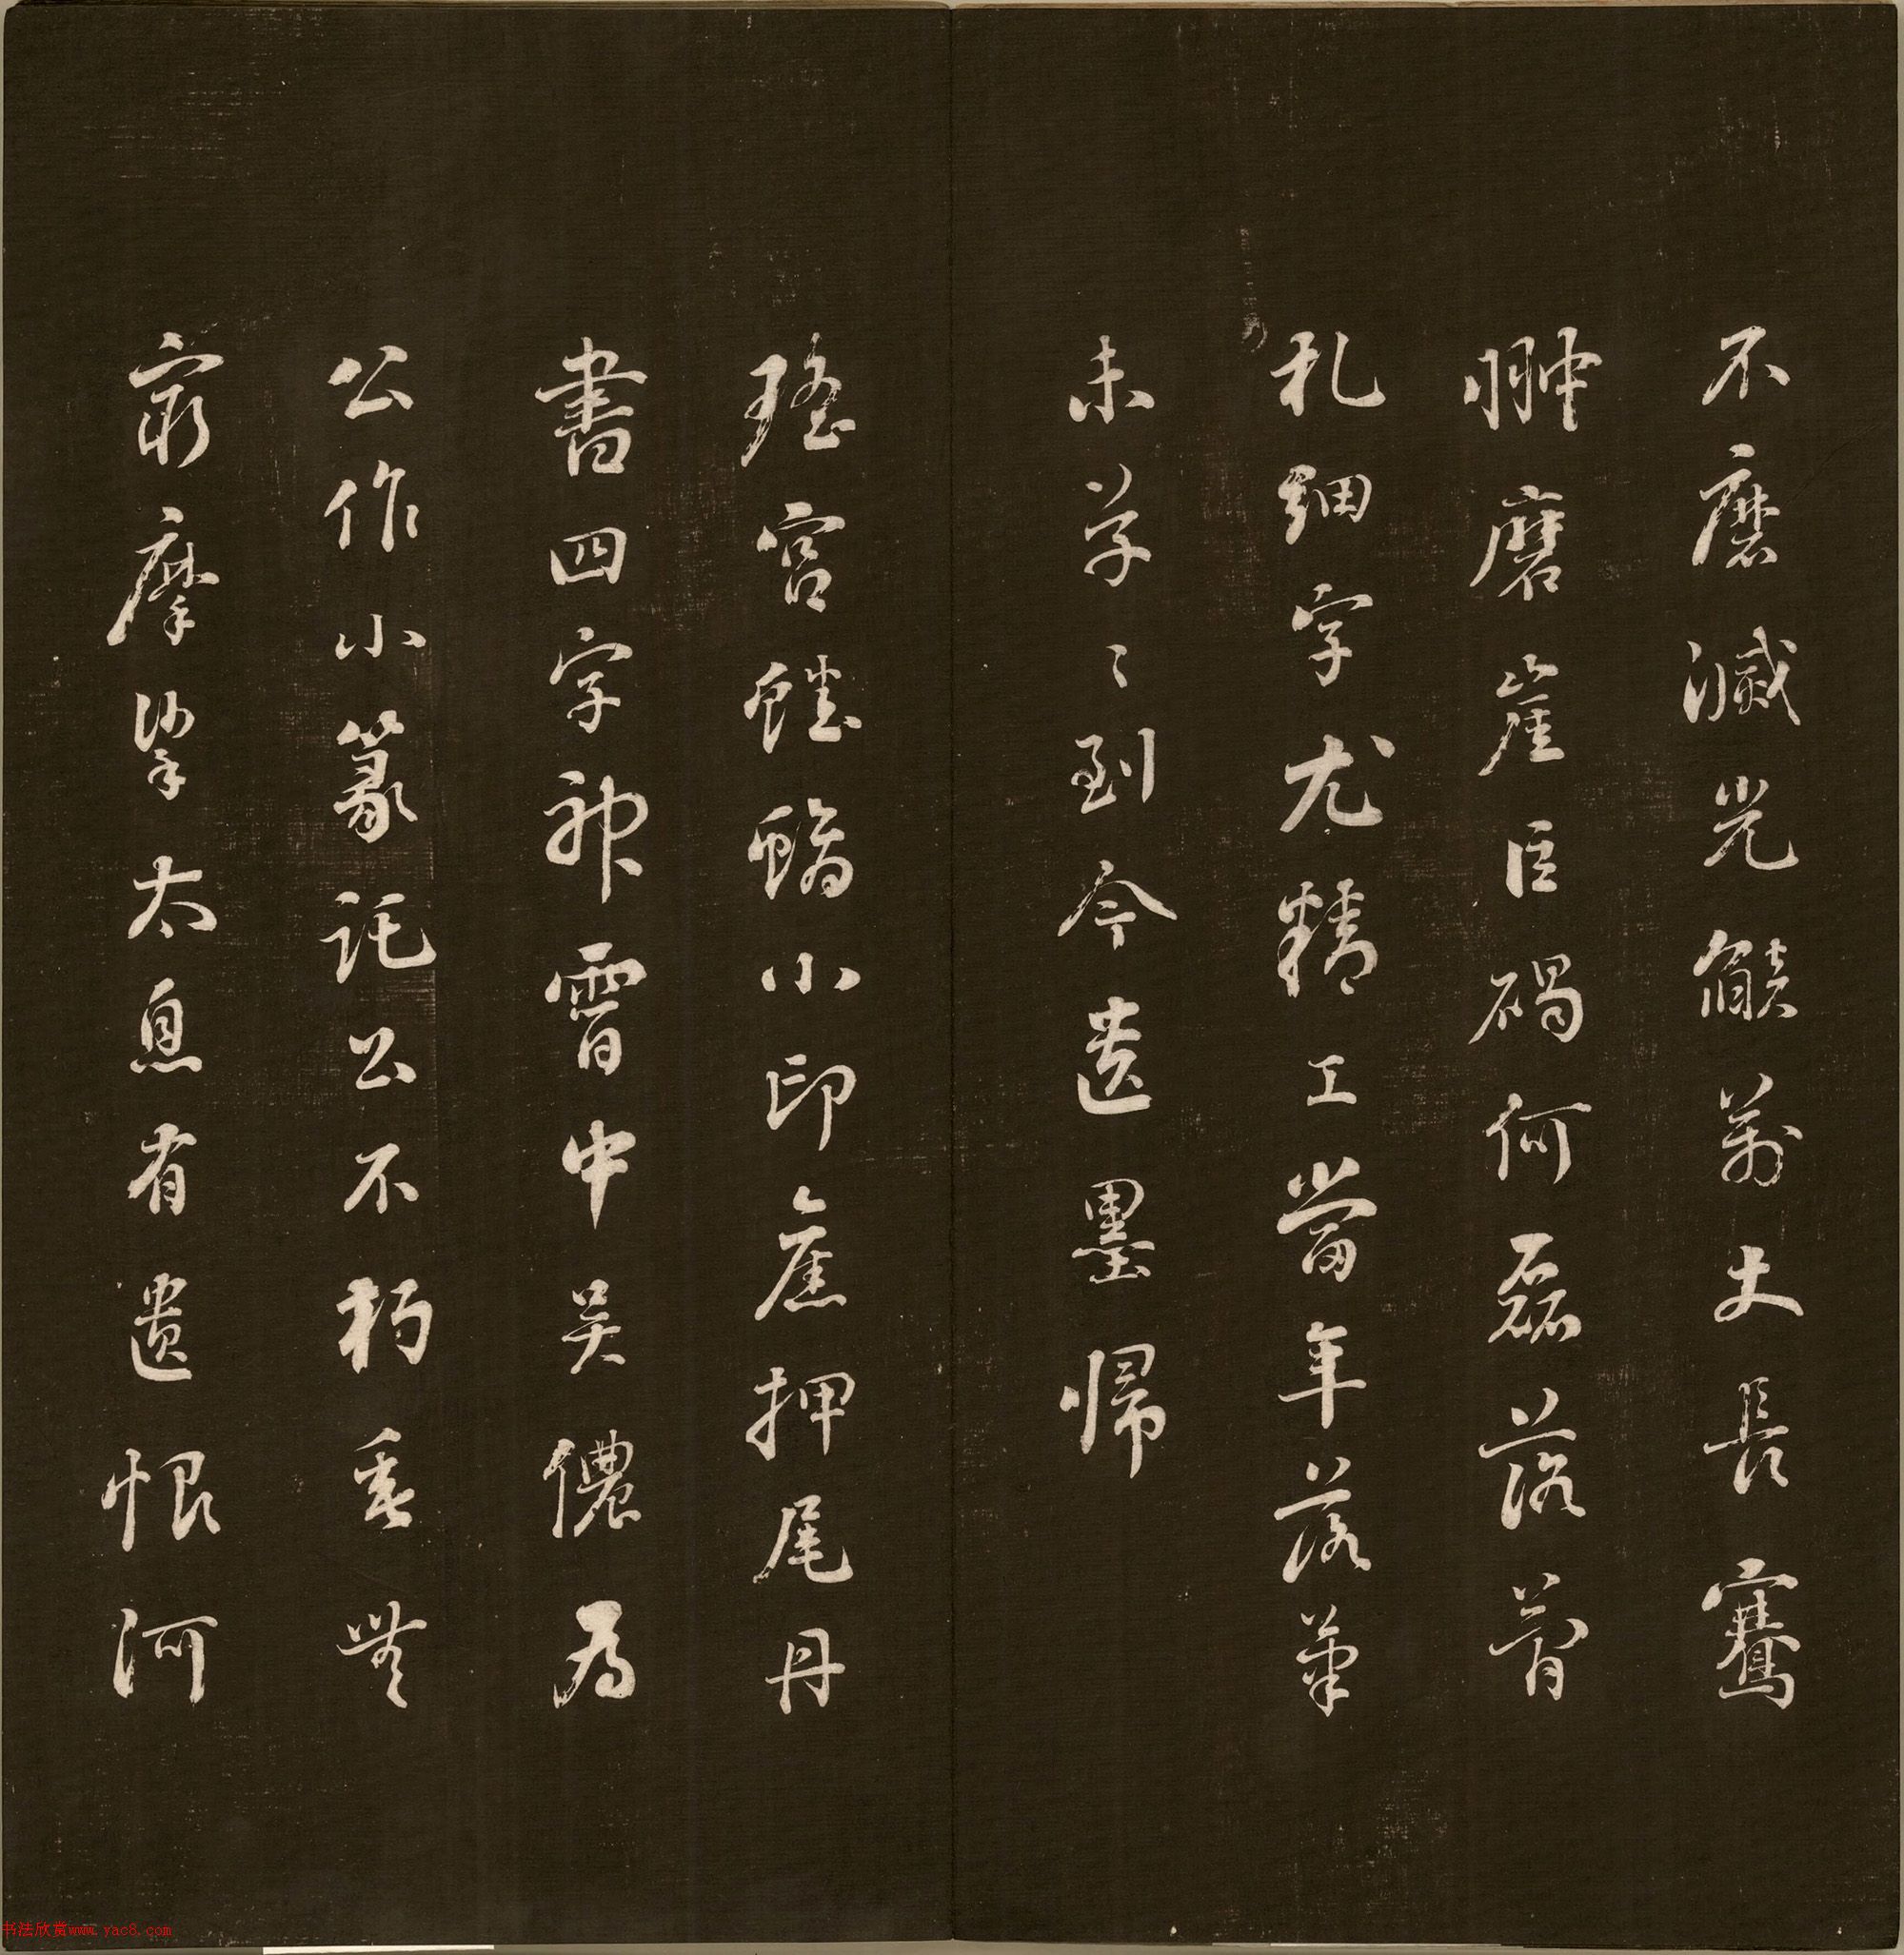 不磨滅光餘萬丈長騫
翀磨崖巨碣何磊落算
札細字尤精工當年落筆
未草〻到今遺墨歸
瑤宮蟠螭小印燕押尾丹
書四字神霄中吴儂為
公作小篆託公不朽垂無
窮摩挲太息有遺恨河
书法欣赏www.yac8.com